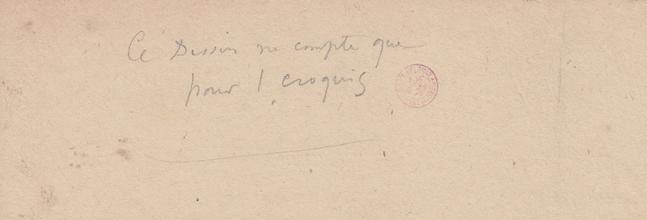 Ce Dessin ne compte que
pour 1 croquis